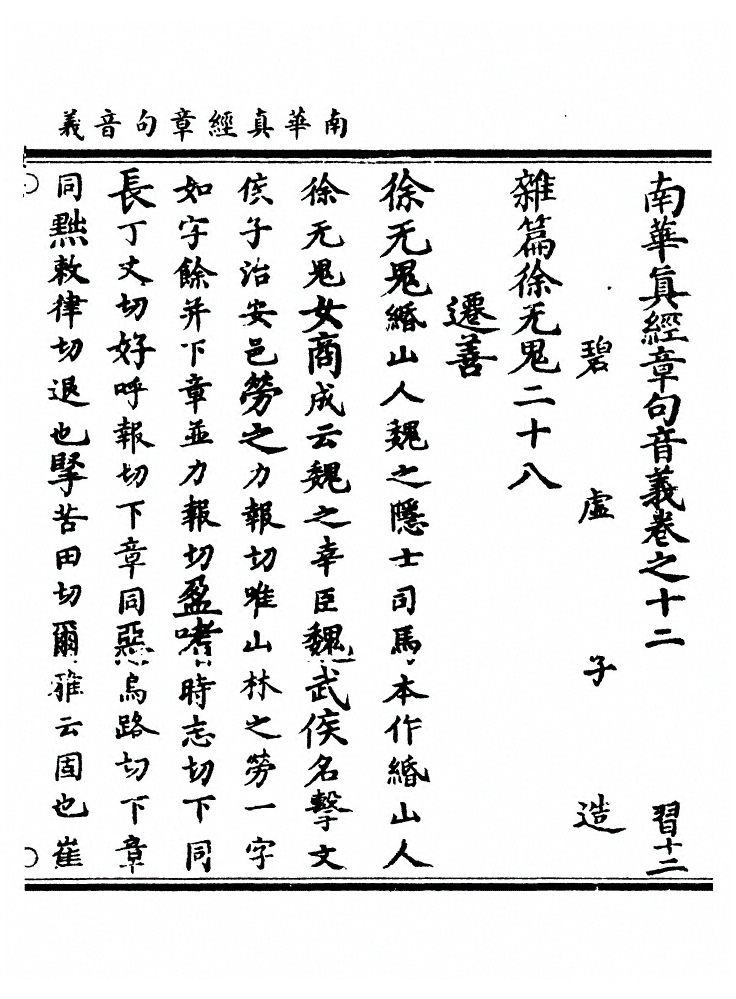 南華真經章句音義
南華真經章句音義卷之十二　習十二
碧虛子造
雜篇徐无鬼二十八
遷善
徐无鬼緡山人魏之隱士司馬本作緡山人
徐无鬼女商成云魏之幸臣魏武侯名擊文
侯子治安邑勞之力報切唯山林之勞一字
如字餘并下章並力報切盈嗜時志切下同
長丁丈切好呼報切下章同惡烏路切下章
同黜敕律切退也掔苦田切爾雅云固也崔